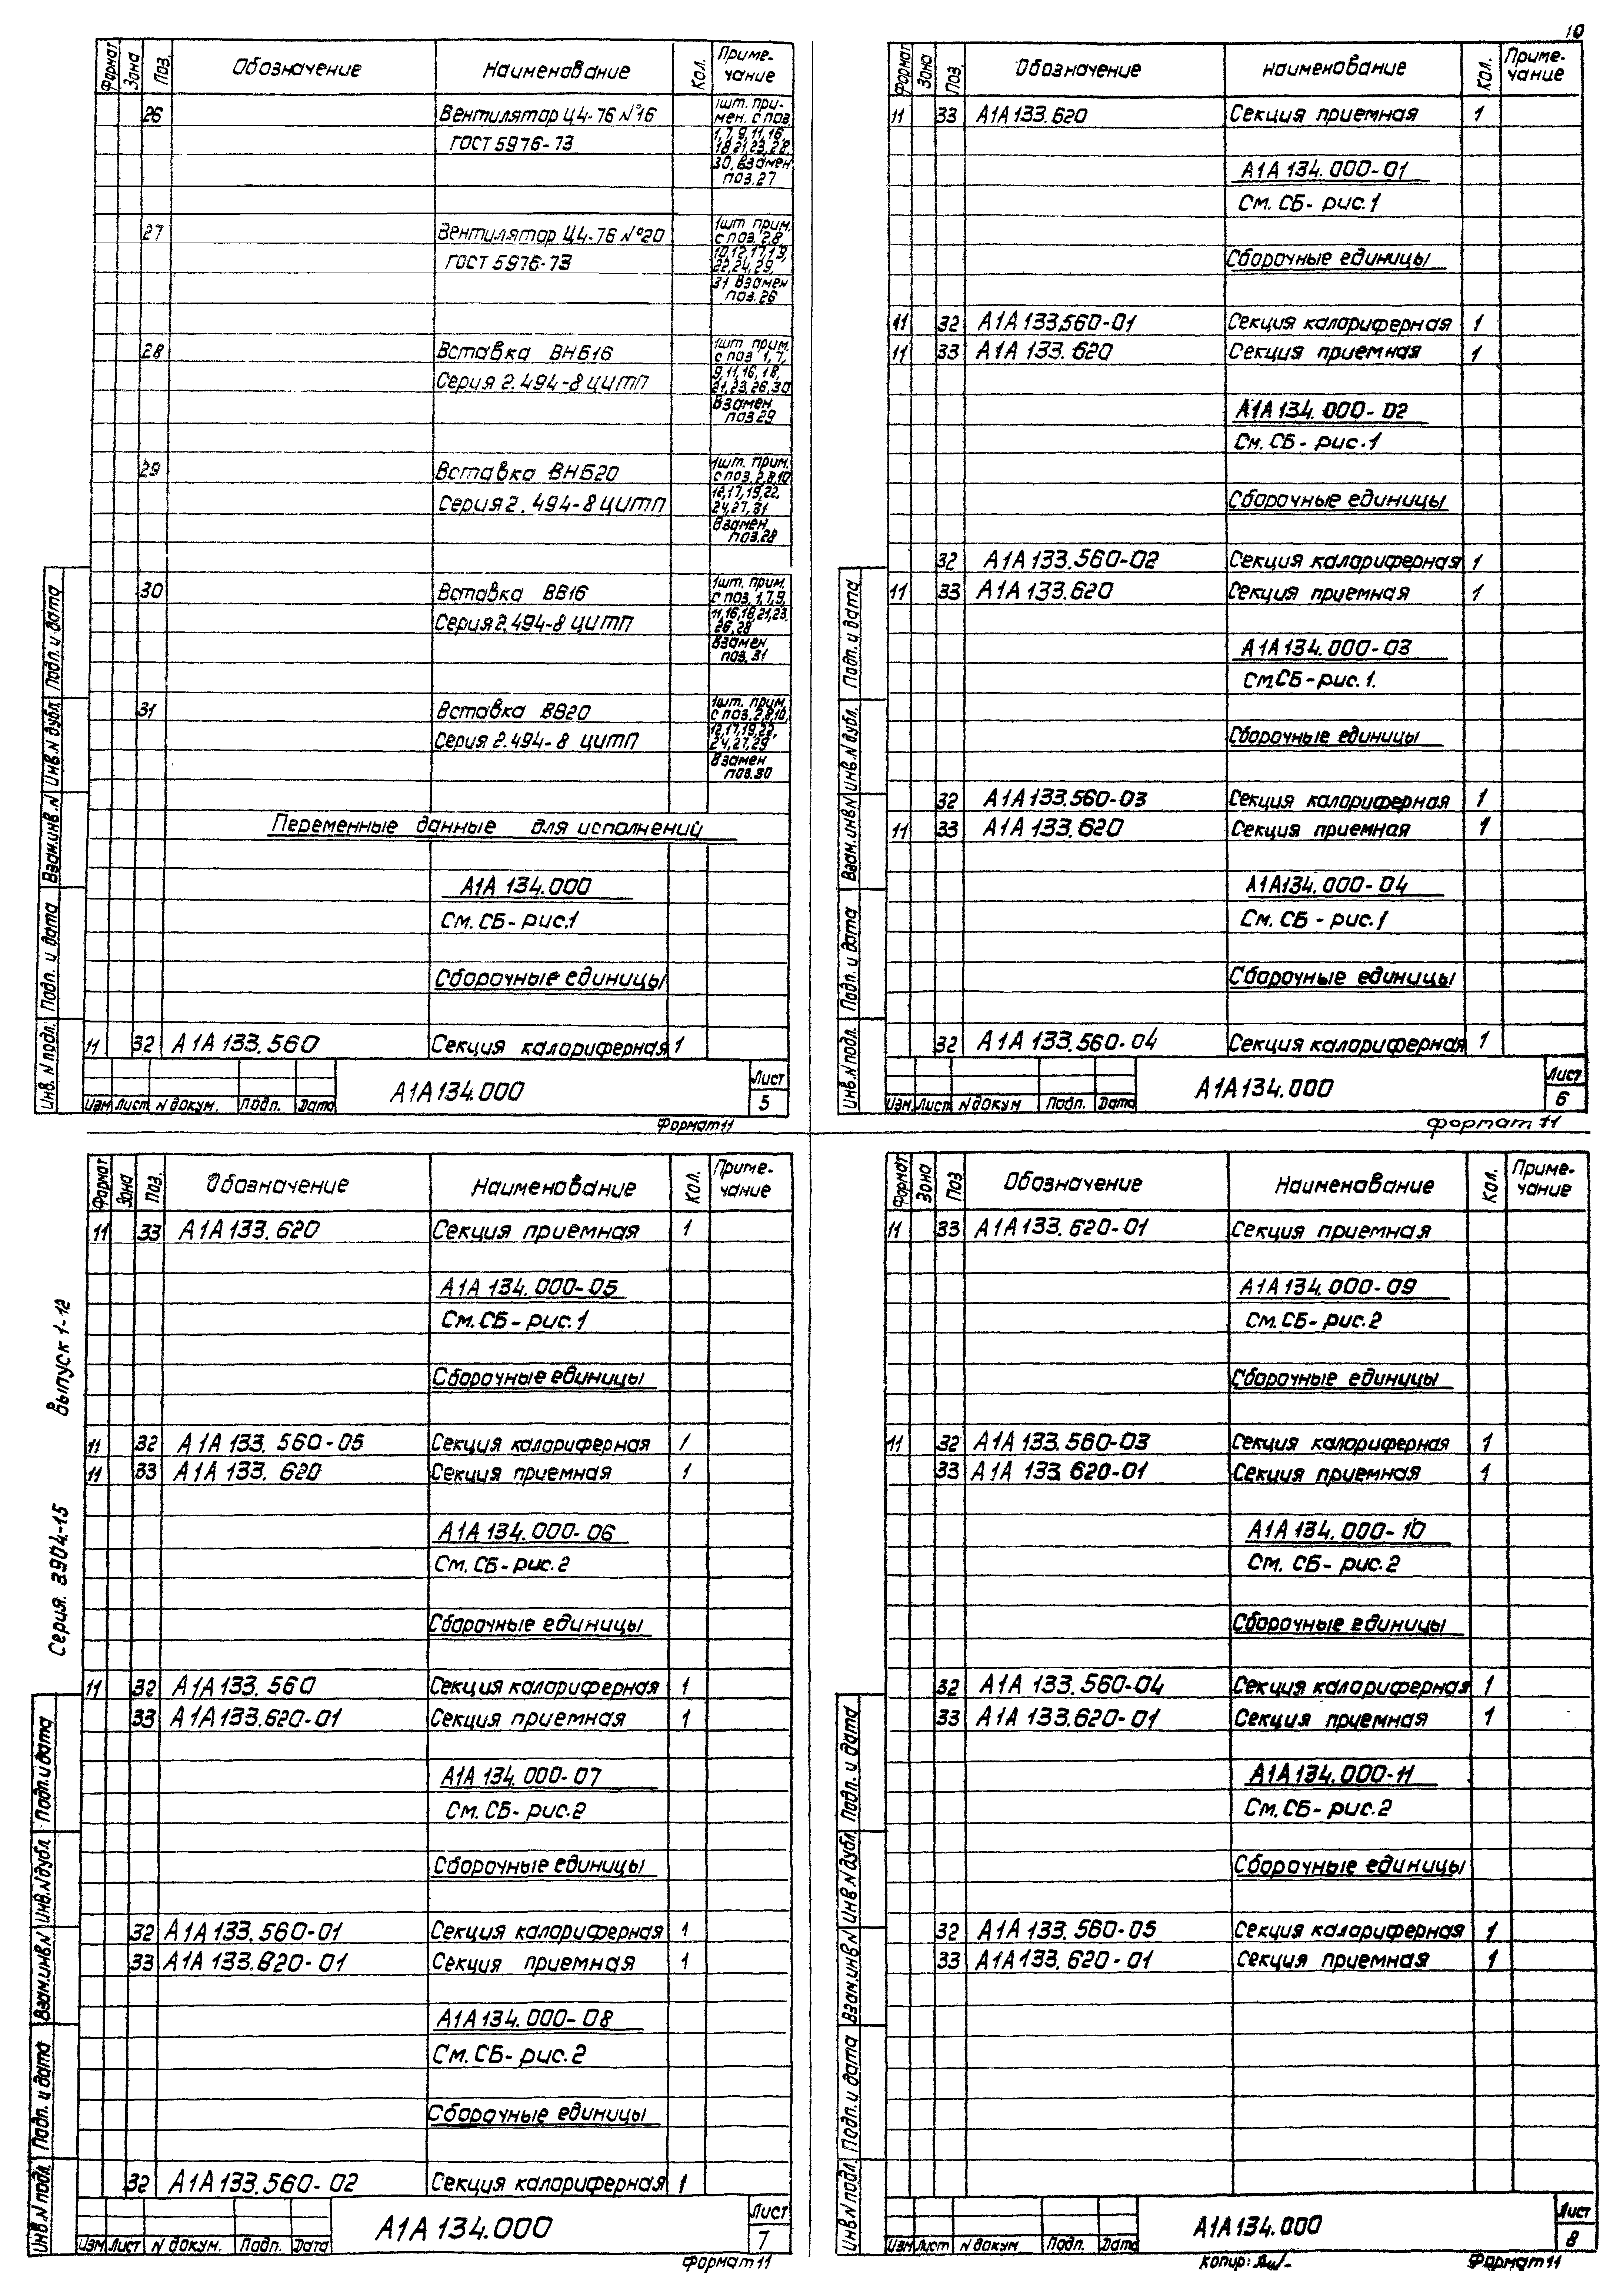 10
Формат Зона Поз. Обозначение Наименование Кол. Приме-
чание
26 Вентилятор Ц4-76 №16 1шт. при-
мен. с поз.
ГОСТ 5976-73 1,7,9,11,16,
18,21,23,28
30, взамен
поз.27
27 Вентилятор Ц4-76 №20 1шт прим.
с поз. 2,8
ГОСТ 5976-73 10,12,17,19,
22,24,29,
31 взамен
поз.26
28 Вставка ВНБ16 1шт прим.
с поз 1,7,
Серия 2.494-8 ЦИТП 9,11,16,18,
21,23,26,30
Взамен
поз29
29 Вставка ВНБ20 1шт. прим.
с поз. 2,8,10
Серия 2.494-8 ЦИТП 12,17,19,22,
24,27,31
Взамен
поз.28
30 Вставка ВВ16 1шт. прим.
с поз. 1,7,9,
Серия 2.494-8 ЦИТП 11,16,18,21,23,
26,28
Взамен
поз.31
31 Вставка ВВ20 1шт. прим.
с поз. 2,8,10,
Серия 2.494-8 ЦИТП 12,17,19,22,
24,27,29
Взамен
поз.30
Переменные данные для исполнений
А1А 134.000
См. СБ - рис.1
Сборочные единицы
11 32 А1А 133.560 Секция калориферная 1
Инв.N подл. Подп. и дата Взам.инв.N Инв.N дубл. Подп. и дата
Изм Лист N докум. Подп. Дата А1А134.000 Лист
5
Формат 11
Формат Зона Поз Обозначение Наименование Кол. Приме-
чание
11 33 А1А 133.620 Секция приемная 1
А1А 134.000-01
См. СБ - рис.1
Сборочные единицы
11 32 А1А 133.560-01 Секция калориферная 1
11 33 А1А 133.620 Секция приемная 1
А1А 134.000-02
См. СБ - рис.1
Сборочные единицы
32 А1А 133.560-02 Секция калориферная 1
11 33 А1А 133.620 Секция приемная 1
А1А 134.000-03
См.СБ - рис.1.
Сборочные единицы
32 А1А 133.560-03 Секция калориферная 1
11 33 А1А 133.620 Секция приемная 1
А1А134.000-04
См. СБ - рис.1
Сборочные единицы
32 А1А 133.560-04 Секция калориферная 1
Инв.N подл. Подп. и дата Взам.инв.N Инв.N дубл. Подп. и дата
Изм. Лист N докум Подп. Дата А1А134.000 Лист
6
Формат 11
Серия. 3.904.-15 Выпуск 1-12
Формат Зона Поз. Обозначение Наименование Кол. Приме-
чание
11 33 А1А 133.620 Секция приемная 1
А1А 134.000-05
См. СБ - рис.1
Сборочные единицы
11 32 А1А 133.560-05 Секция калориферная 1
11 33 А1А 133.620 Секция приемная 1
А1А 134.000-06
См. СБ - рис.2
Сборочные единицы
11 32 А1А 133.560 Секция калориферная 1
33 А1А 133.620-01 Секция приемная 1
А1А 134.000-07
См. СБ - рис.2
Сборочные единицы
32 А1А 133.560-01 Секция калориферная 1
33 А1А 133.820-01 Секция приемная 1
А1А 134.000-08
См. СБ - рис.2
Сборочные единицы
32 А1А 133.560-02 Секция калориферная 1
Инв.N подл. Подп. и дата Взам.инв.N Инв.N дубл. Подп. и дата
Изм Лист N докум. Подп. Дата А1А 134.000 Лист
7
Формат 11
Формат Зона Поз Обозначение Наименование Кол. Приме-
чание
11 33 А1А 133.620-01 Секция приемная
А1А 134.000-09
См. СБ - рис.2
Сборочные единицы
11 32 А1А 133.560-03 Секция калориферная 1
33 А1А 133.620-01 Секция приемная 1
А1А 134.000-10
См. СБ - рис.2
Сборочные единицы
32 А1А 133.560-04 Секция калориферная 1
33 А1А 133.620-01 Секция приемная 1
А1А 134.000-11
См. СБ - рис.2
Сборочные единицы
32 А1А 133.560-05 Секция калориферная 1
33 А1А 133.620-01 Секция приемная 1
Инв.N подл. Подп. и дата Взам.инв.N Инв.N дубл. Подп. и дата
Изм Лист N докум Подп. Дата А1А134.000 Лист
8
Копир: Формат 11